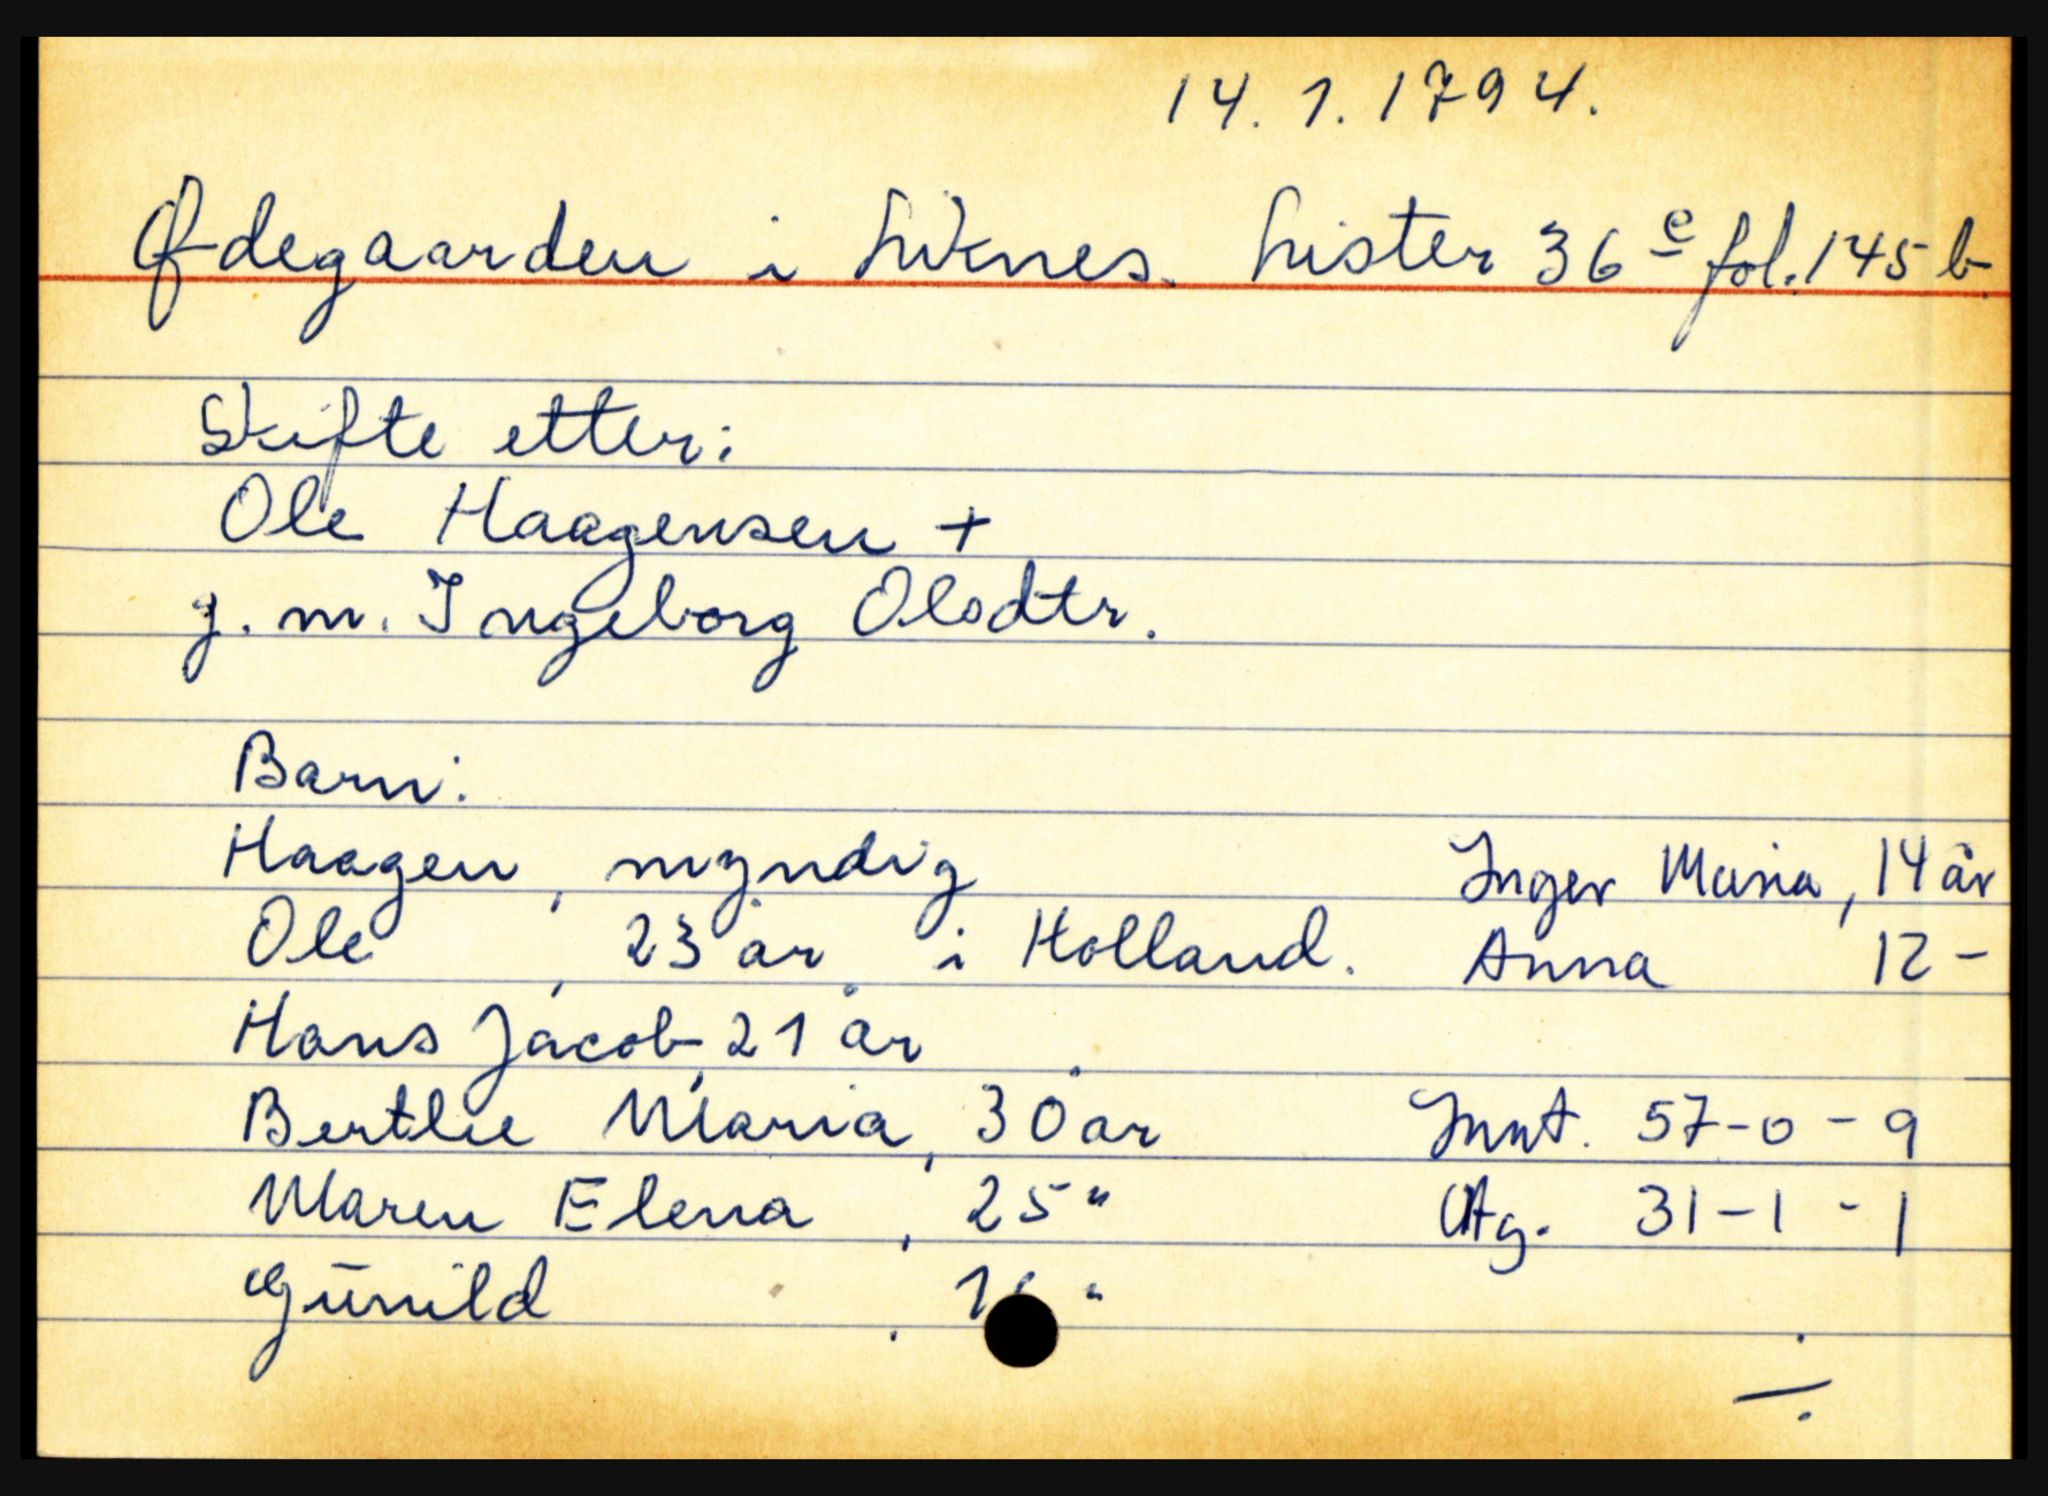 14. 1. 1794.
Ødegaarden i Liknes. Lister 36 e fol. 145 b
Skifte etter:
Ole Haagensen +
g. m. Ingeborg Olsdtr.
Barn:
Haagen, myndig
Ole, 23 år i Holland.
Hans Jacob, 21 år
Berthe Maria, 30 år
Maren Elena, 25 "
Gunild, "
Inger Maria, 14 år
Anna 12 -
Innt. 57-0-9
Utg. 31-1-1